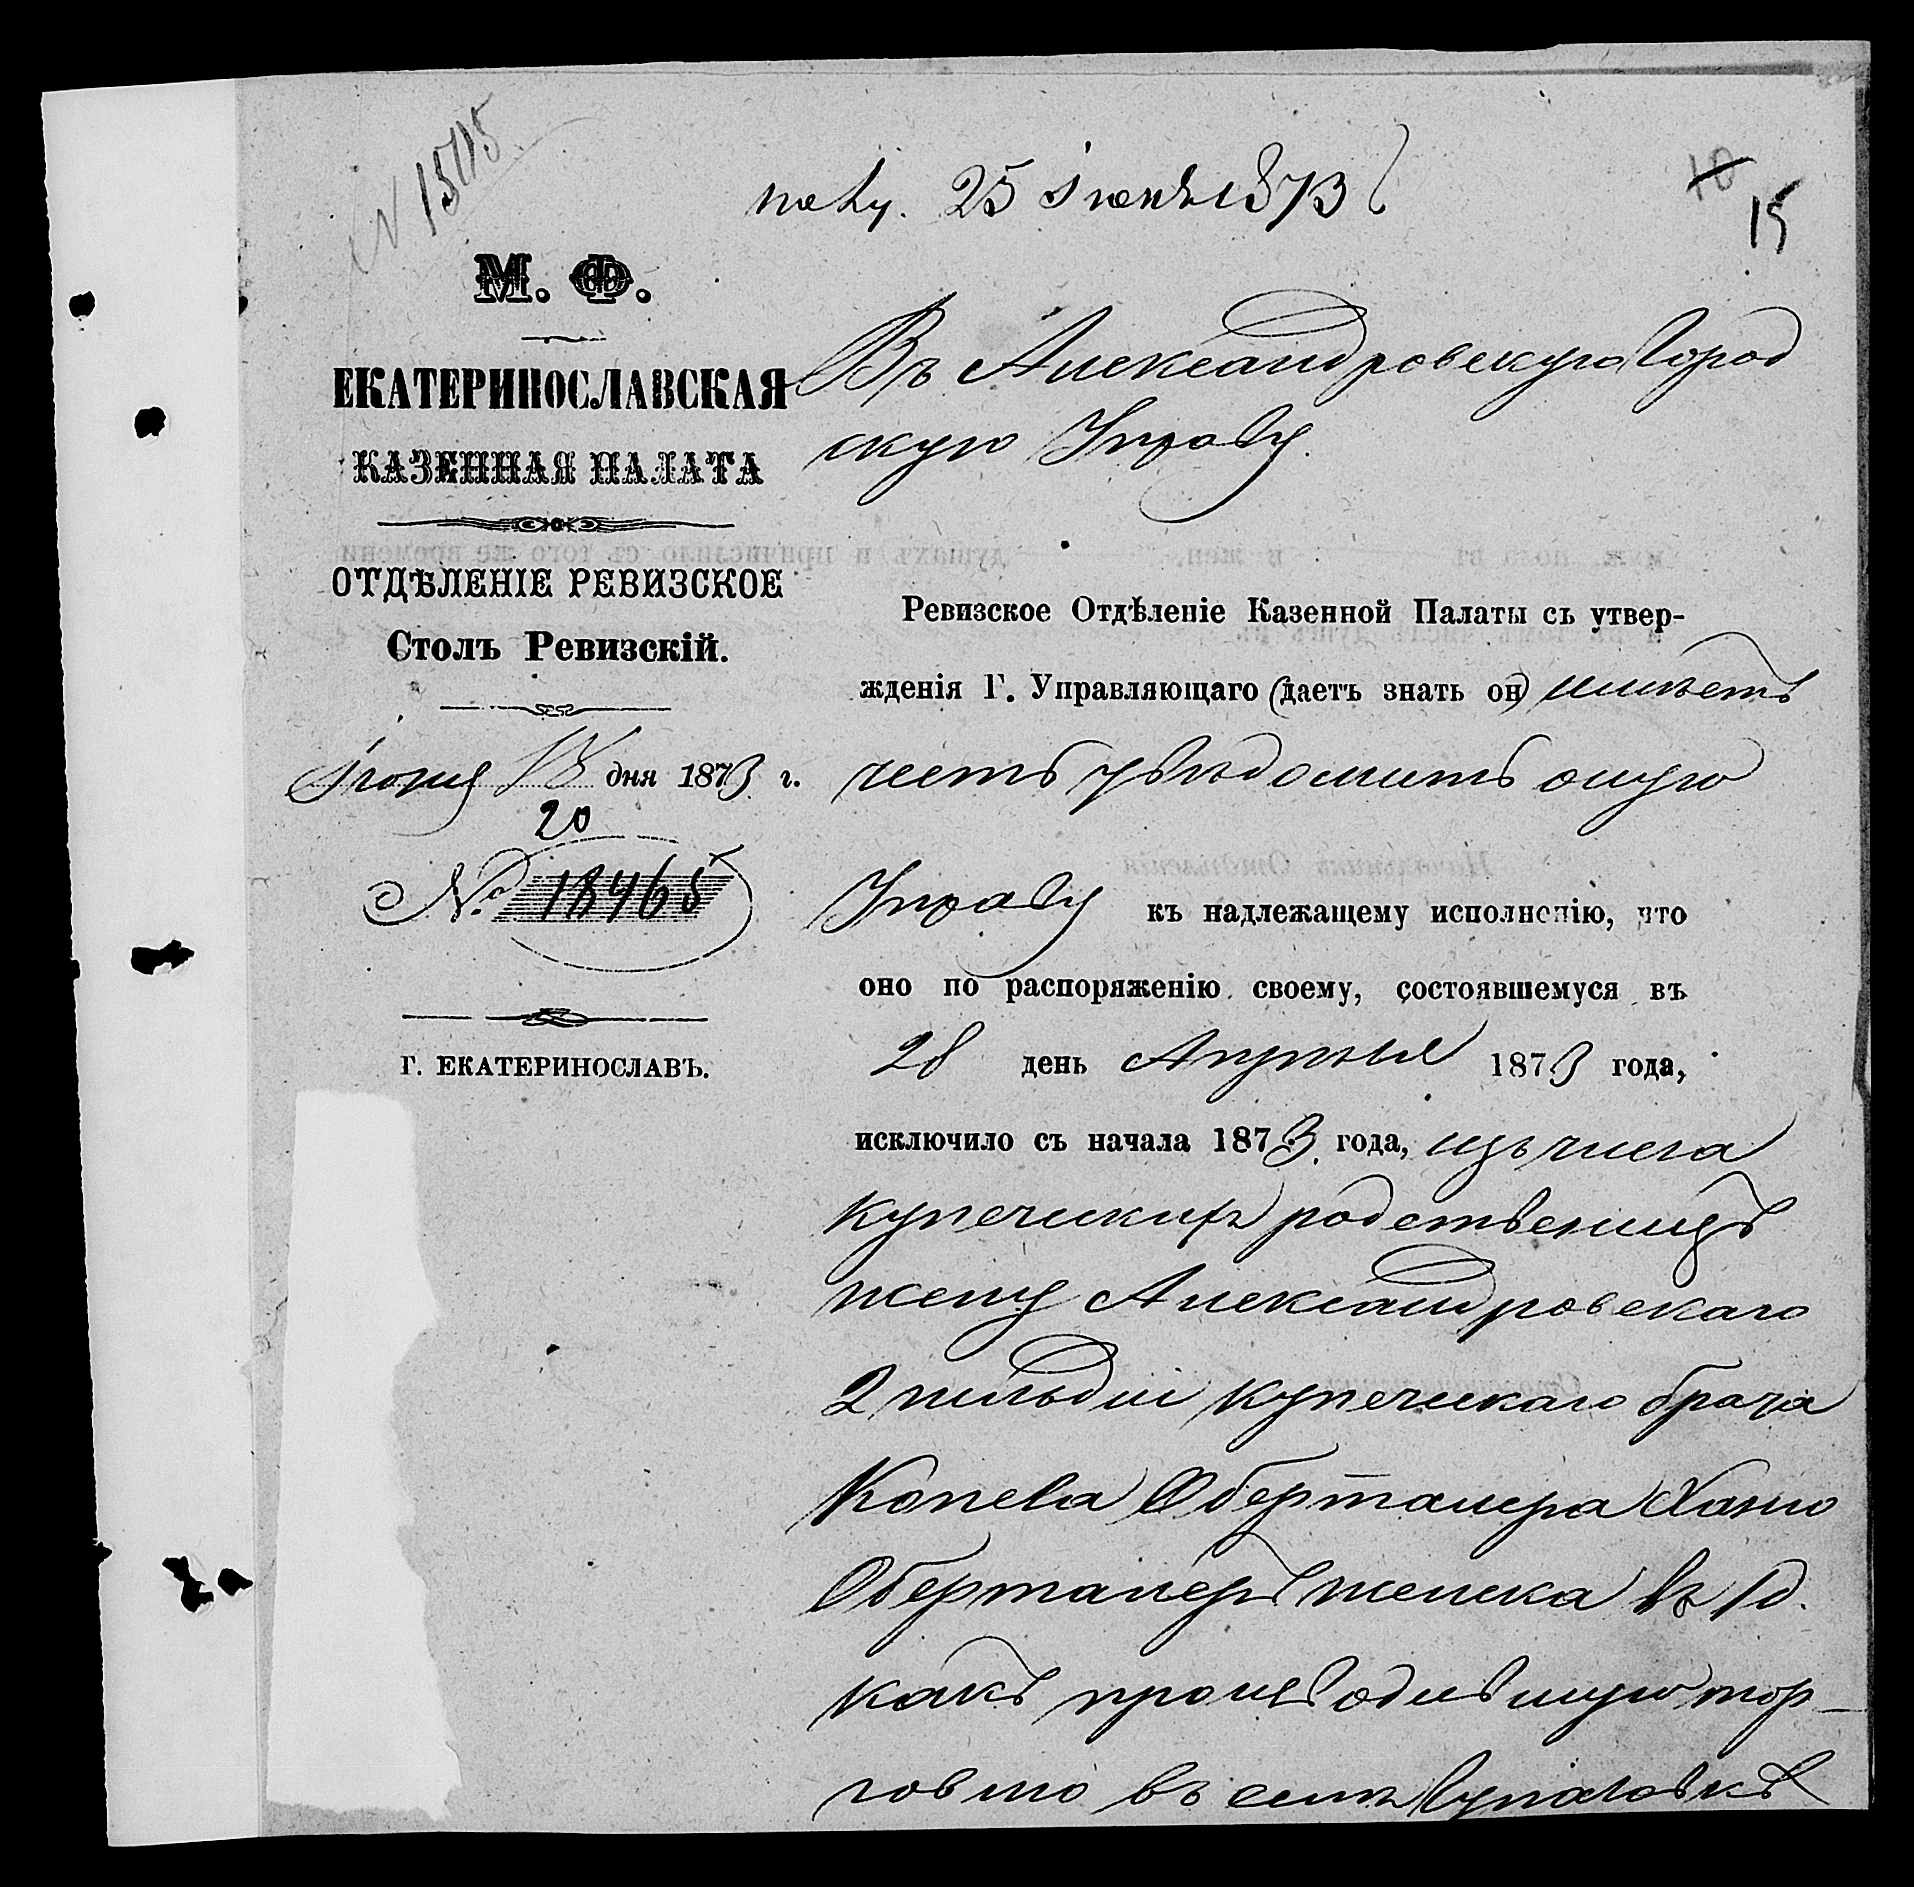 N 1505
полу. 25 Іюня 1873
10
15
М. Ф.
ЕКАТЕРИНОСЛАВСКАЯ
КАЗЕННАЯ ПАЛАТА
ОТДѢЛЕНІЕ РЕВИЗСКОЕ
Столъ Ревизскій.
Іюня 18 дня 1873 г.
20
№ 18465
Г. ЕКАТЕРИНОСЛАВЪ.
Въ Александровскую Город
скую Управу.
Ревизское Отдѣленіе Казенной Палаты съ утвер-
жденія Г. Управляющаго (даетъ знать он) имѣетъ
честь увѣдомить оную
Управу къ надлежащему исполненію, что
оно по распоряженію своему, состоявшемуся въ
28 день Апрѣля 1873 года,
исключило съ начала 1873 года, изъ числа
купеческихъ родственицъ
жену Александровскаго
2 гильдіи купеческаго брата
Копела Оберталера Ханю
Оберталеръ женска въ 1 д.
какъ производившую тор-
говлю въ селѣ